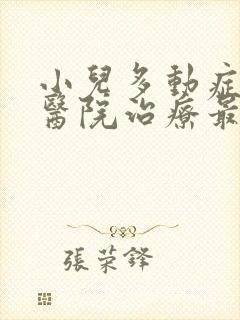 小兒多動症
醫院治療最
張荣鋒